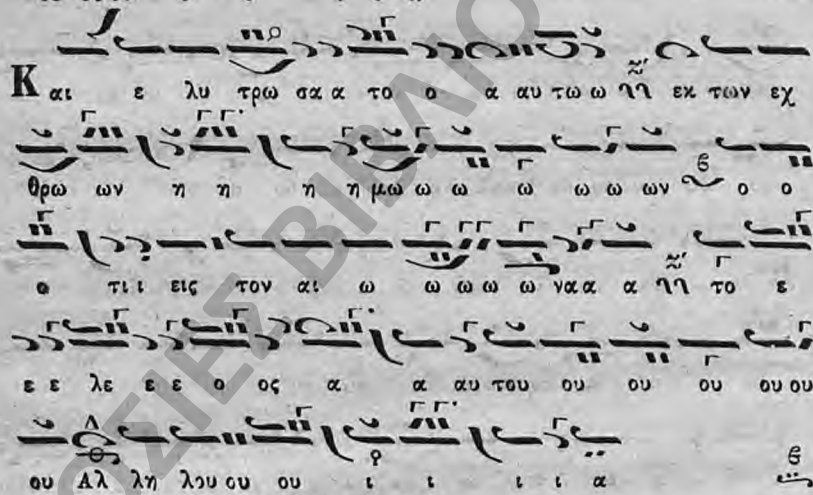 Και ε λυ τρω σα α το ο α αυ τω ω εκ των εχ
θρω ων η η η η μω ω ω ω ω ω ων ο ο
ο τι ι εις τον αι ω ω ω ω ω να α α το ε
ε ε λε ε ε ο ος α α αυ του ου ου ου ου ου
ου Αλ λη λου ου ου ι ι ι ι α